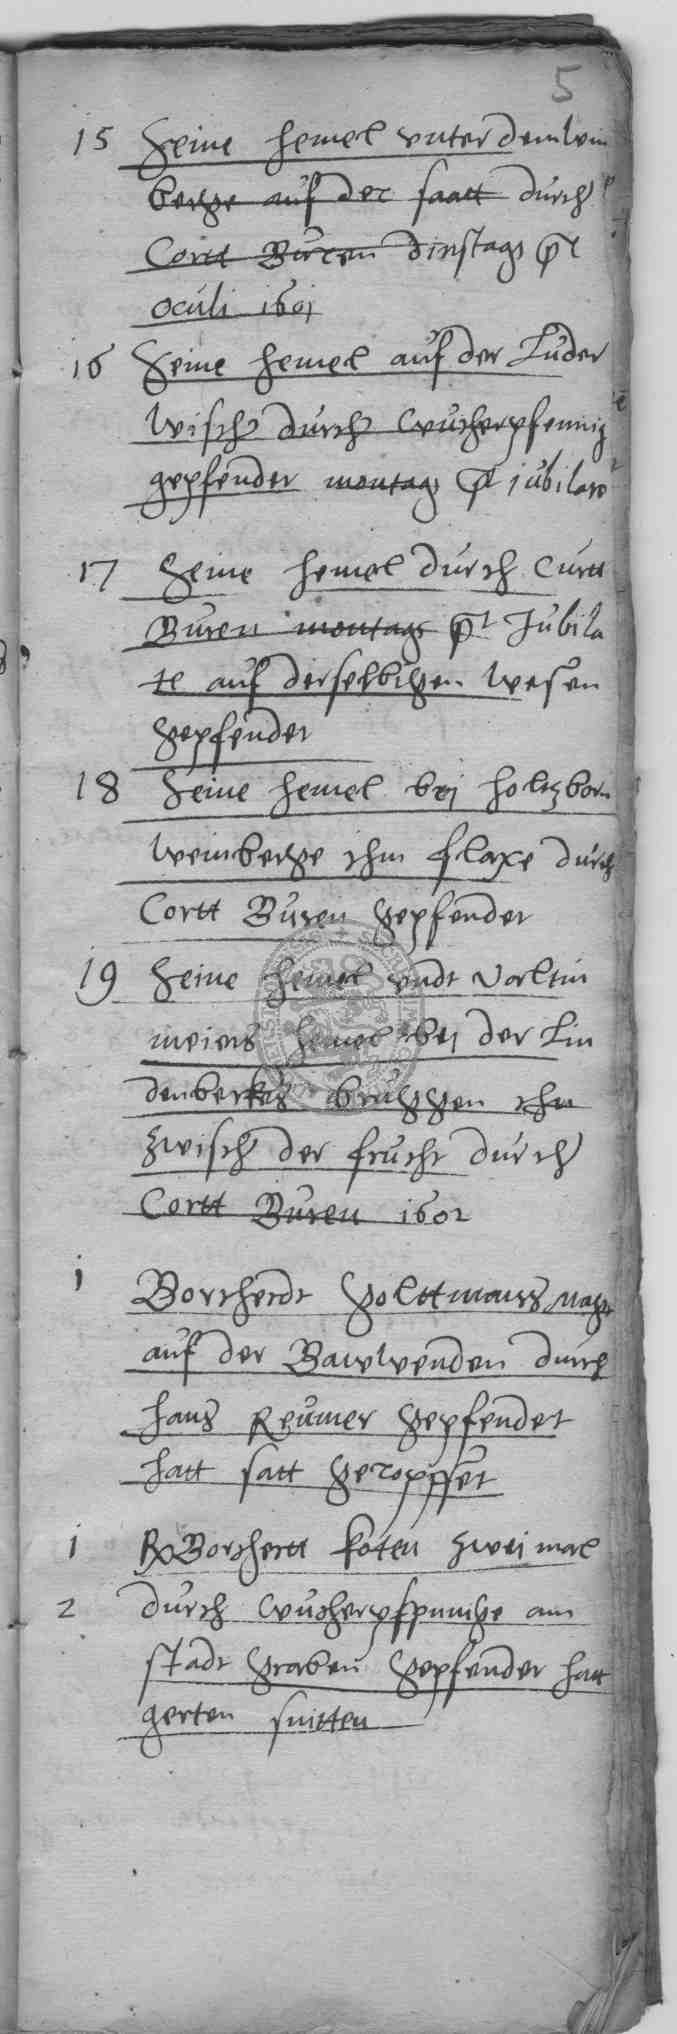 5
15 Seine hemel unter dem wein
berge auf der saatt durch
Cortt Buren dinstags post
oculi 1601
16 Seine hemel auf der Luder
wisch durch Wucherpfennig
gepfendet montags post jubilate
17 Seine hemel durch Curtt
Buren montags post Jubila
te auf derselbigen wesen
gepfendet
18 Seine hemel bei holtzborn
weinberge ihm flaxe durch
Cortt Buren gepfendet
19 Seine hemel undt Valtin
meiers hemel bei der Lin
denberkes bruggen ihn
zwisch der frucht durch
Cortt Buren 1602
1 Borcherdt Goltmans magt
auf der Bawwenden durch
hans Reumer gepfendet
hatt satt geropffet
1 Borchertt Koten zwei mal
2 durch Wucherpfennige am
stadt graben gepfendet hatt
gerten snitten